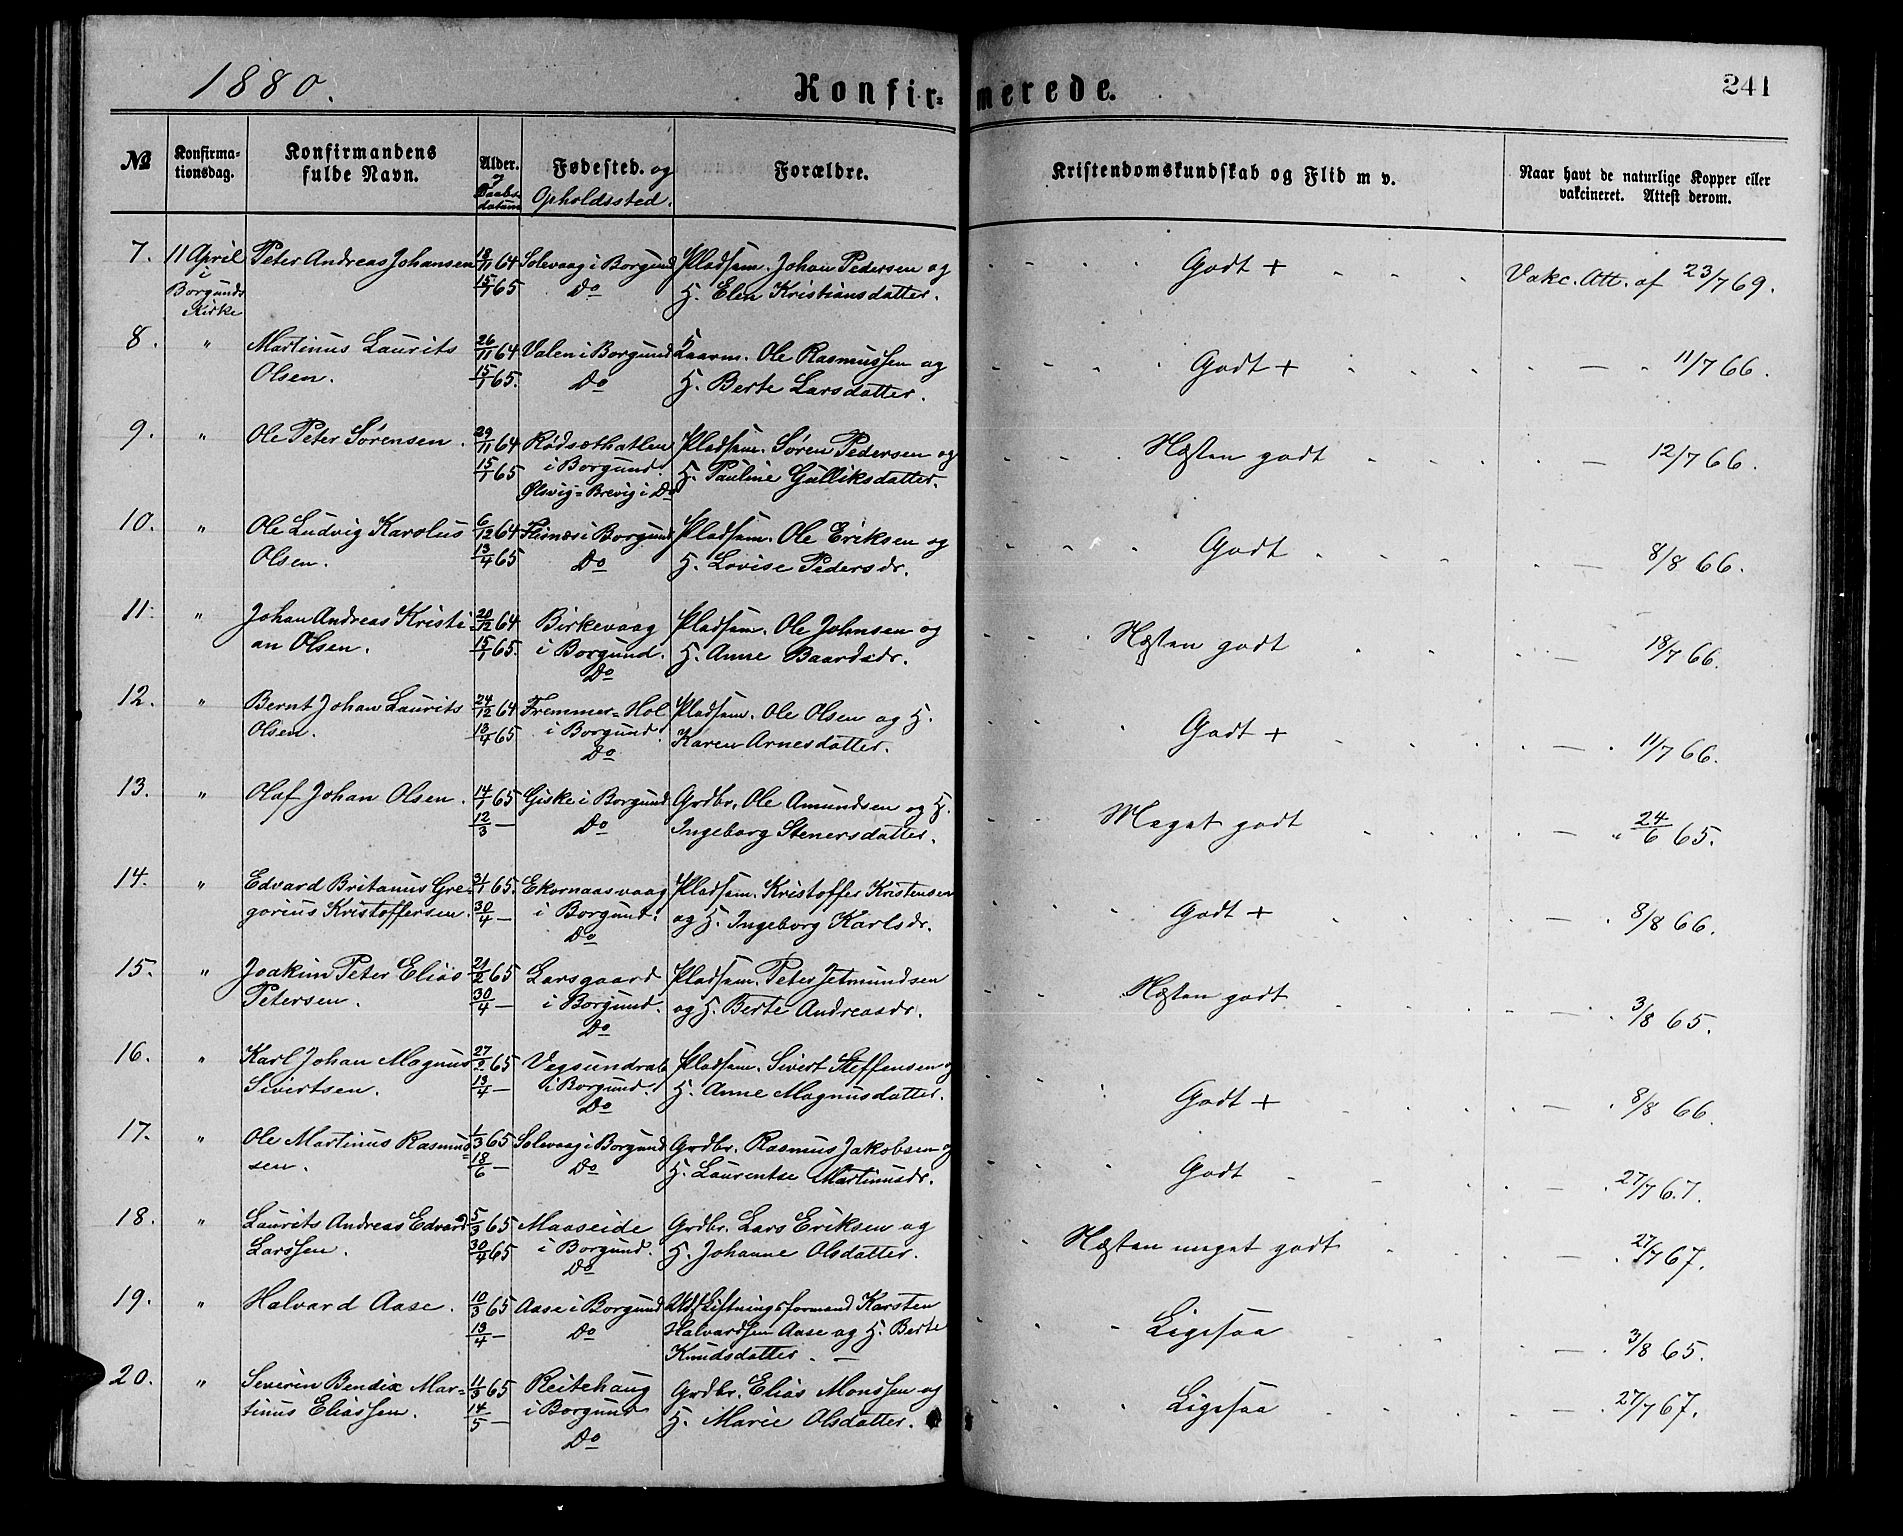 1880.
Konfir=
merede.
241
No
Konfirma=
tionsdag.
Konfirmandens
fulde Navn.
Alder.
og
Daabs-
datum
Fødested. og
Opholdssted.
Forældre.
Kristendomskundskab og Flid m v.
Naar havt de naturlige Kopper eller
vakcineret. Attest derom.
7. 11 April Peter Andreas Johansen 18/11 64 Solevaag i Borgund Pladsm. Johan Pedersen og Godt + Vakc. Att. af 23/7 69.
i Borgunds Kirke 15/1 65 Do H. Elen Kristiansdatter.
8. " Martinus Laurits 26/11 64 Valen i Borgund Kaarm. Ole Rasmussen og Godt + — 11/7 66.
Olsen. 15/1 65. Do H. Berte Larsdatter.
9. " Ole Peter Sørensen. 29/11 64 Rødsæthatlen Pladsm. Søren Pedersen og Næsten godt — 12/7 66.
15/1 65 i Borgund. H. Pauline Gulliksdatter.
Ølsvig=Brevig i Do
10. " Ole Ludvig Karolus 6/12 64 Flisnæs i Borgund Pladsm. Ole Eriksen og Godt — 8/8 66.
Olsen. 13/4 65 Do H. Lovise Pedersdr.
11. " Johan Andreas Kristi- 20/12 64 Birkevaag Pladsm. Ole Johnsen og Næsten godt — 18/7 66.
an Olsen. 15/1 65. i Borgund. H. Anne Baardsdr.
Do
12. " Bernt Johan Laurits 24/12 64 Fremmer=Hol Pladsm. Ole Olsen og H. Godt + — 11/7 66.
Olsen. 13/4 65 i Borgund. Karen Arnesdatter.
Do
13. " Olaf Johan Olsen. 14/1 65 Giske i Borgund Grdbr. Ole Amundsen og H. Meget godt — 24/6 65.
12/3 — Do Ingeborg Stenersdatter.
14. " Edvard Britanus Gre- 31/1 65. Ekornaasvaag Pladsm. Kristoffer Kristensen Godt + — 8/8 66.
gorius Kristoffersen. 30/4 — i Borgund. og H. Ingeborg Karlsdr.
Do
15. " Joakim Peter Elias 21/2 65 Larsgaard Pladsm. Peter Jetmundsen Næsten godt — 3/8 65.
Petersen. 30/4 — i Borgund. og H. Berte Andreasdr.
Do
16. " Karl Johan Magnus 27/2 65 Vegsundral Pladsm. Sivert Steffensen og Godt + — 8/8 66.
Sivertsen. 13/4 — i Borgund. H. Anne Magnusdatter.
Do
17. " Ole Martinus Rasmus= 1/3 65 Solevaag i Borgund Grdbr. Rasmus Jakobsen og Godt — 27/7 67.
sen. 18/6 — Do H. Laurentse Martinusdr.
18. " Laurits Andreas Edvard 5/3 65 Maaseide Grdbr. Lars Eriksen og Næsten meget godt — 27/7 67.
Larssen. 30/4 65 i Borgund. H. Johanne Olsdatter.
Do
19. " Halvard Aase. 10/3 65 Aase i Borgund Udskiftningsformand Karsten Ligesaa — 3/8 65.
13/4 — Do Halvardsen Aase og H. Berte
Knudsdatter. —
20. " Severin Bendix Mar= 11/3 65 Reitehaug Grdbr. Elias Monssen og Ligesaa — 27/7 67.
tinus Eliassen. 14/5 — i Borgund H. Marie Olsdatter.
Do